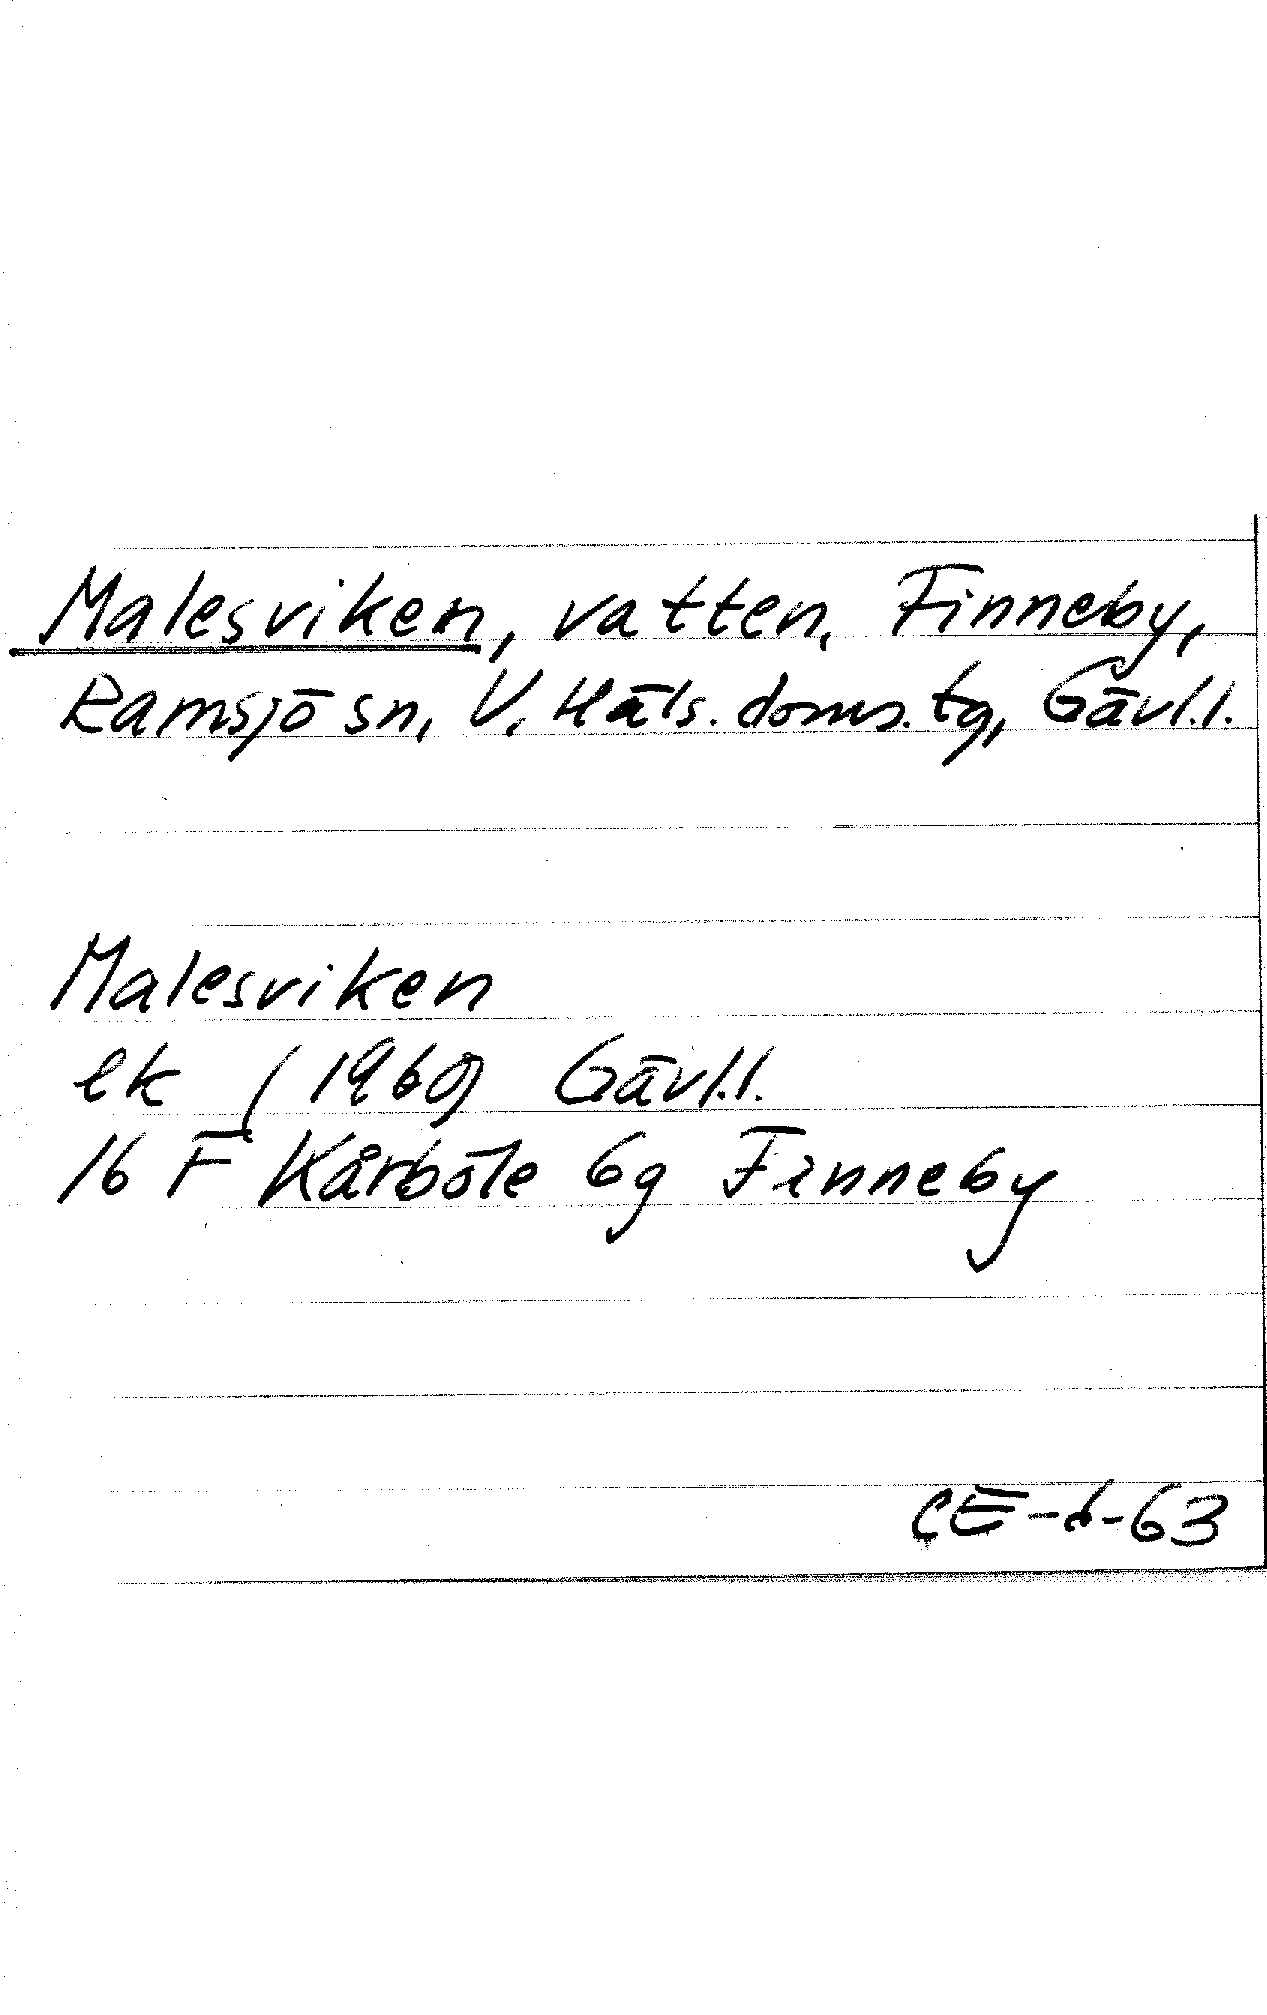 Malesviken, vatten, Finneby,
Ramsjö sn, V. Häls. doms. tg, Gävl.l.
Malesviken
ek (1960) Gävl.l.
16 F Kårböle 6g Finneby
CE-d-63